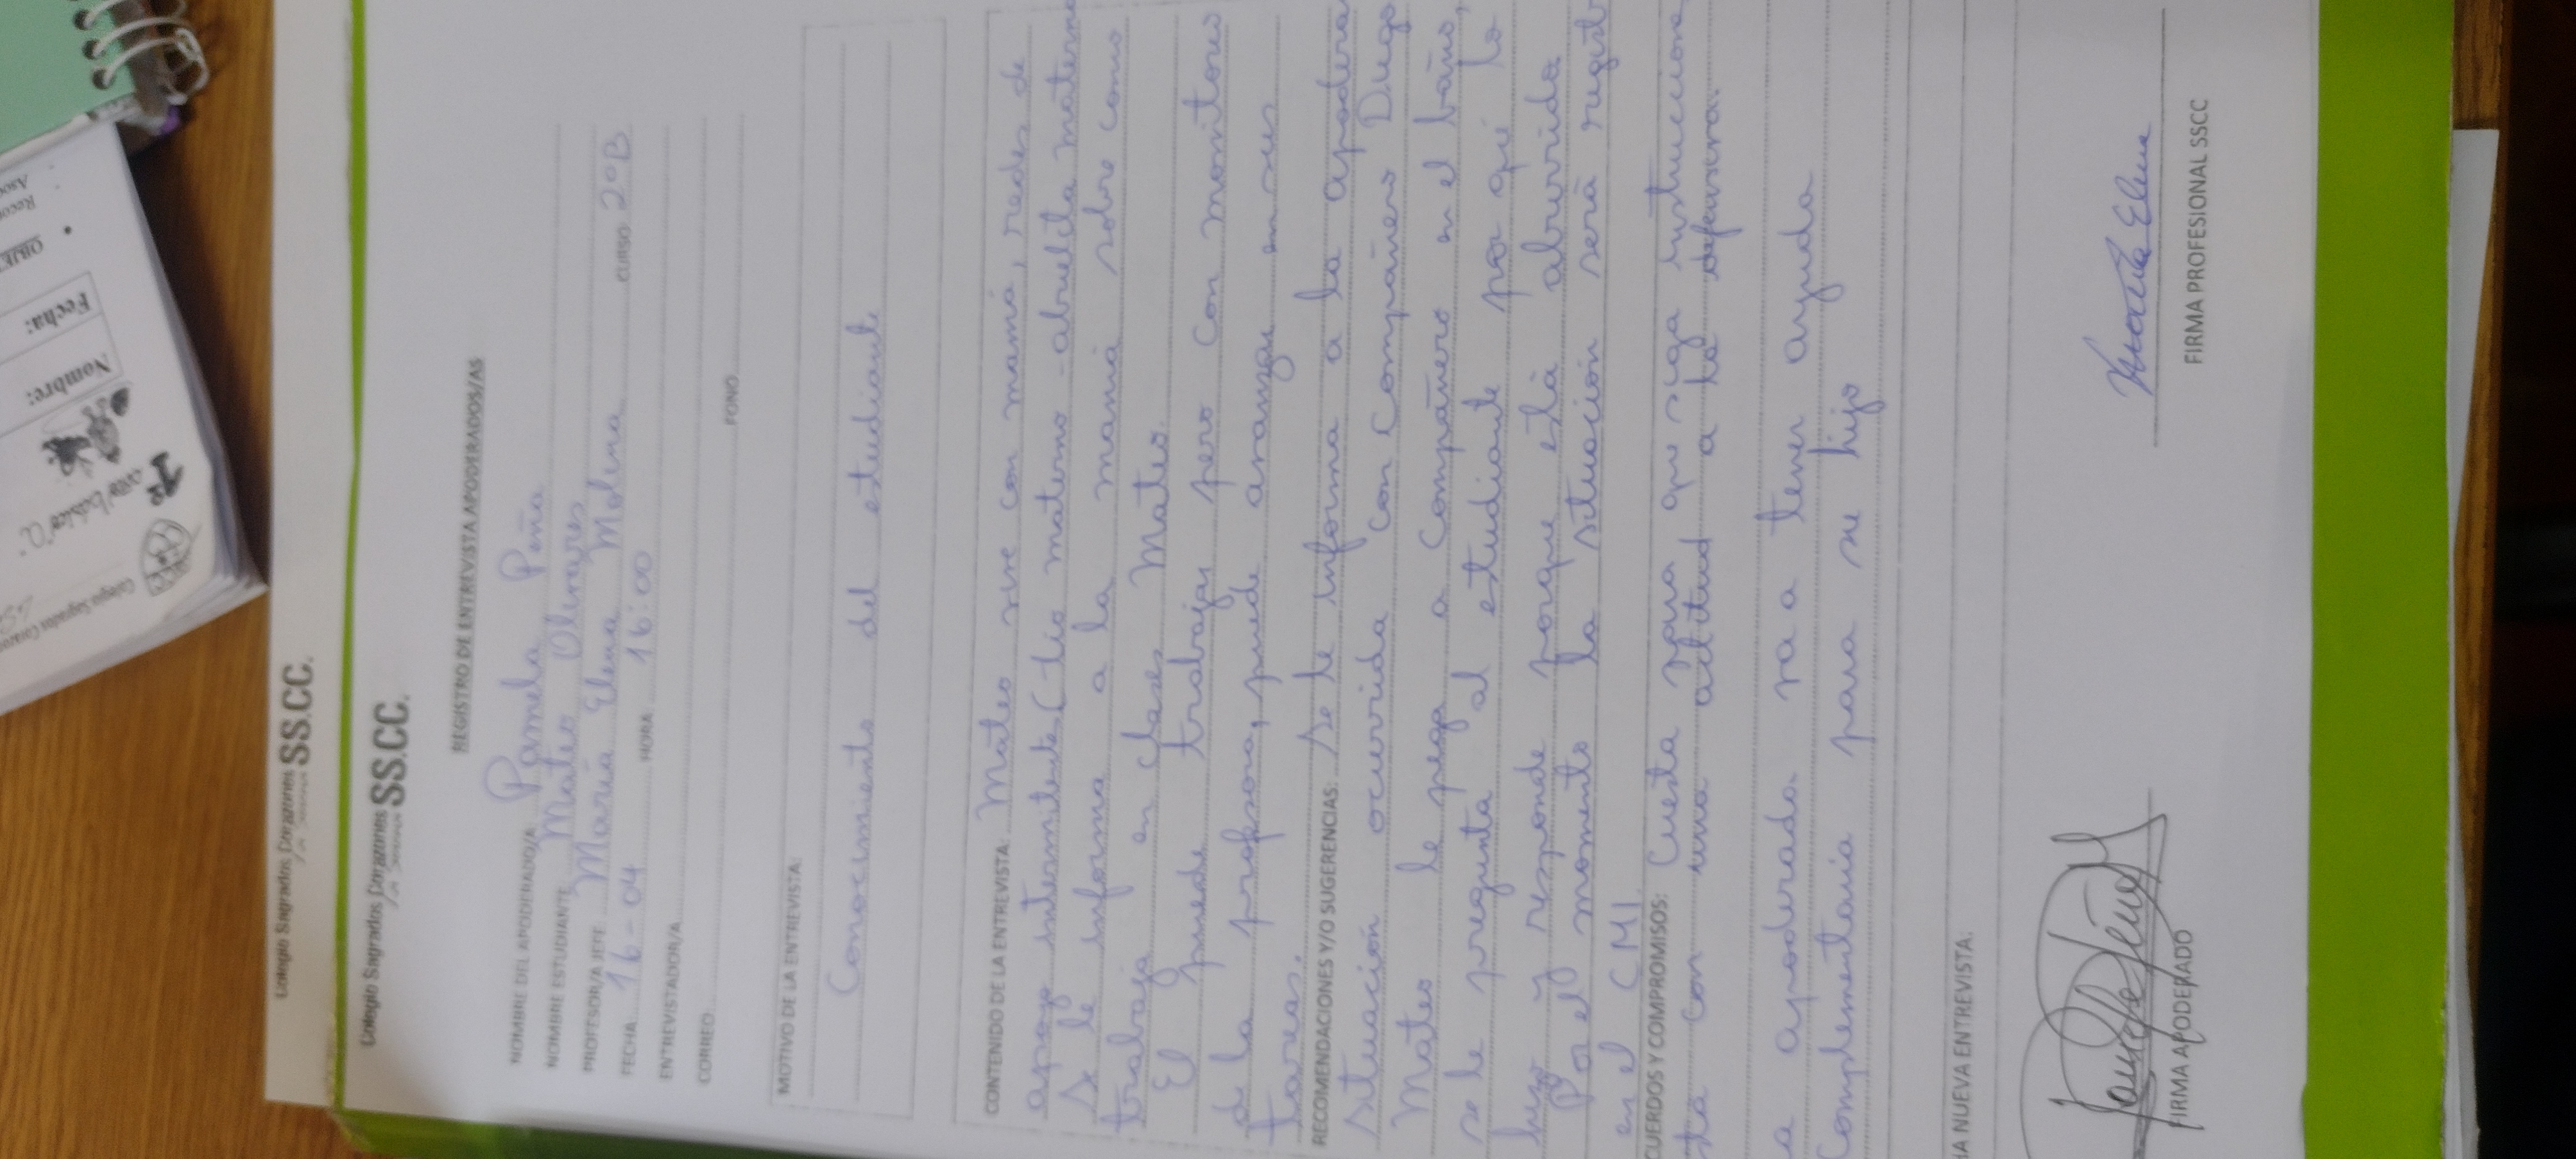 Colegio Sagrados Corazones SS.CC.
Colegio Sagrados Corazones SS.CC.
REGISTRO DE ENTREVISTA APODERADOS/AS
NOMBRE DEL APODERADO/A: Pamela Peña
NOMBRE ESTUDIANTE Mateo Olivares
PROFESOR/A JEFE: María Elena Molina CURSO 2ºB
FECHA: 16-04 HORA 16:00
ENTREVISTADOR/A
CORREO: FONO
MOTIVO DE LA ENTREVISTA:
Conocimiento del estudiante
CONTENIDO DE LA ENTREVISTA: Mateo vive con mamá, redes de
apoyo intermitente (tío materno - abuelita materna
Se le informa a la mamá sobre como
trabaja en clases Mateo.
El puede trabajar pero con monitoreo
de la profesora, puede avanzar en sus
tareas.
RECOMENDACIONES Y/O SUGERENCIAS: Se le informa a la apodera
situación ocurrida con compañero Diego
Mateo le pega a compañero en el baño,
se le pregunta al estudiante por qué lo
hizo y responde porque está aburrido
Por el momento la situación será regist
en el CMI.
CUERDOS Y COMPROMISOS: Cuesta para que siga instruccione
ta con una actitud a la defensiva.
a apoderada va a tener ayuda
Complementaria para su hijo
HA NUEVA ENTREVISTA:
FIRMA APODERADO
FIRMA PROFESIONAL SSCC
Colegio Sagrados Corazo
1º año básico "C"
Nombre:
Fecha:
OBJET
Recon
Asoc